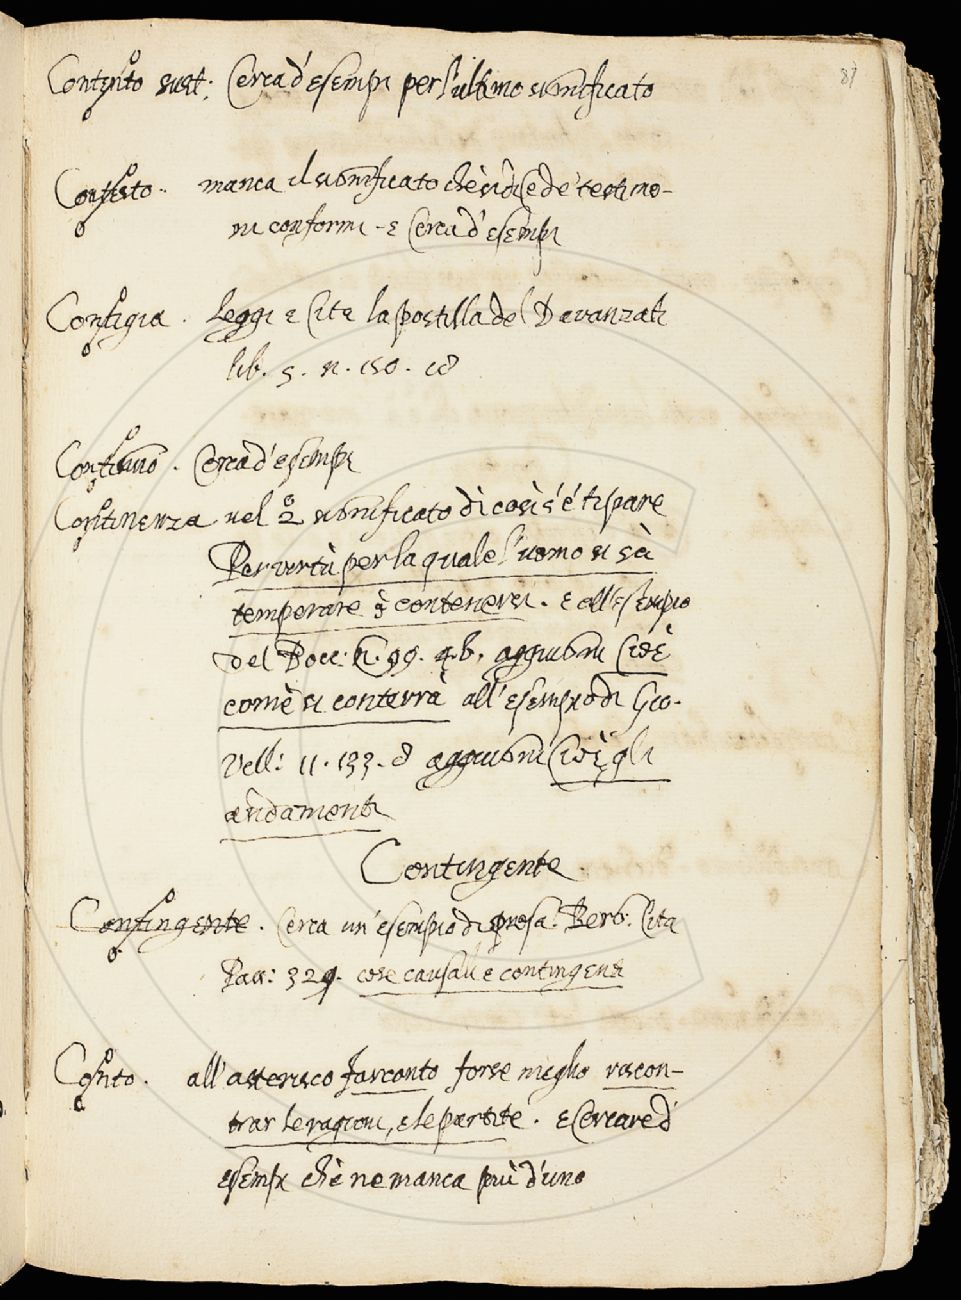 87
Contento sust: Cerca d'esempi per l'ultimo significato
Contesto. manca il significato chè si dice dè testimo-
ni conformi - e Cerca d'esempi
Contigia. Leggi e Cita la postilla del Davanzati
lib. 5. n. 150. 18
Continuo. Cerca d'esempi
Continenza nel 2º significato di così s'é ti pare
Per virtù per la quale l'uomo si sà
temperare e contenersi. e all'esempio
del Bocc: n. 99. 4. b. aggiugni Cioè
comè si conterrà all'esempio di Gio.
Vell: 11. 133. 8 aggiugni Cioè gli
andamenti
Contingente
Contingente. Cerca un'esempio di presa. Berb. Cita
Pass: 329. cose causali e contingenti
Conto. all'asterisco far conto forse meglio riscon-
trar le ragioni, e le partite. e Cercare d'
esempi chè ne manca più d'uno